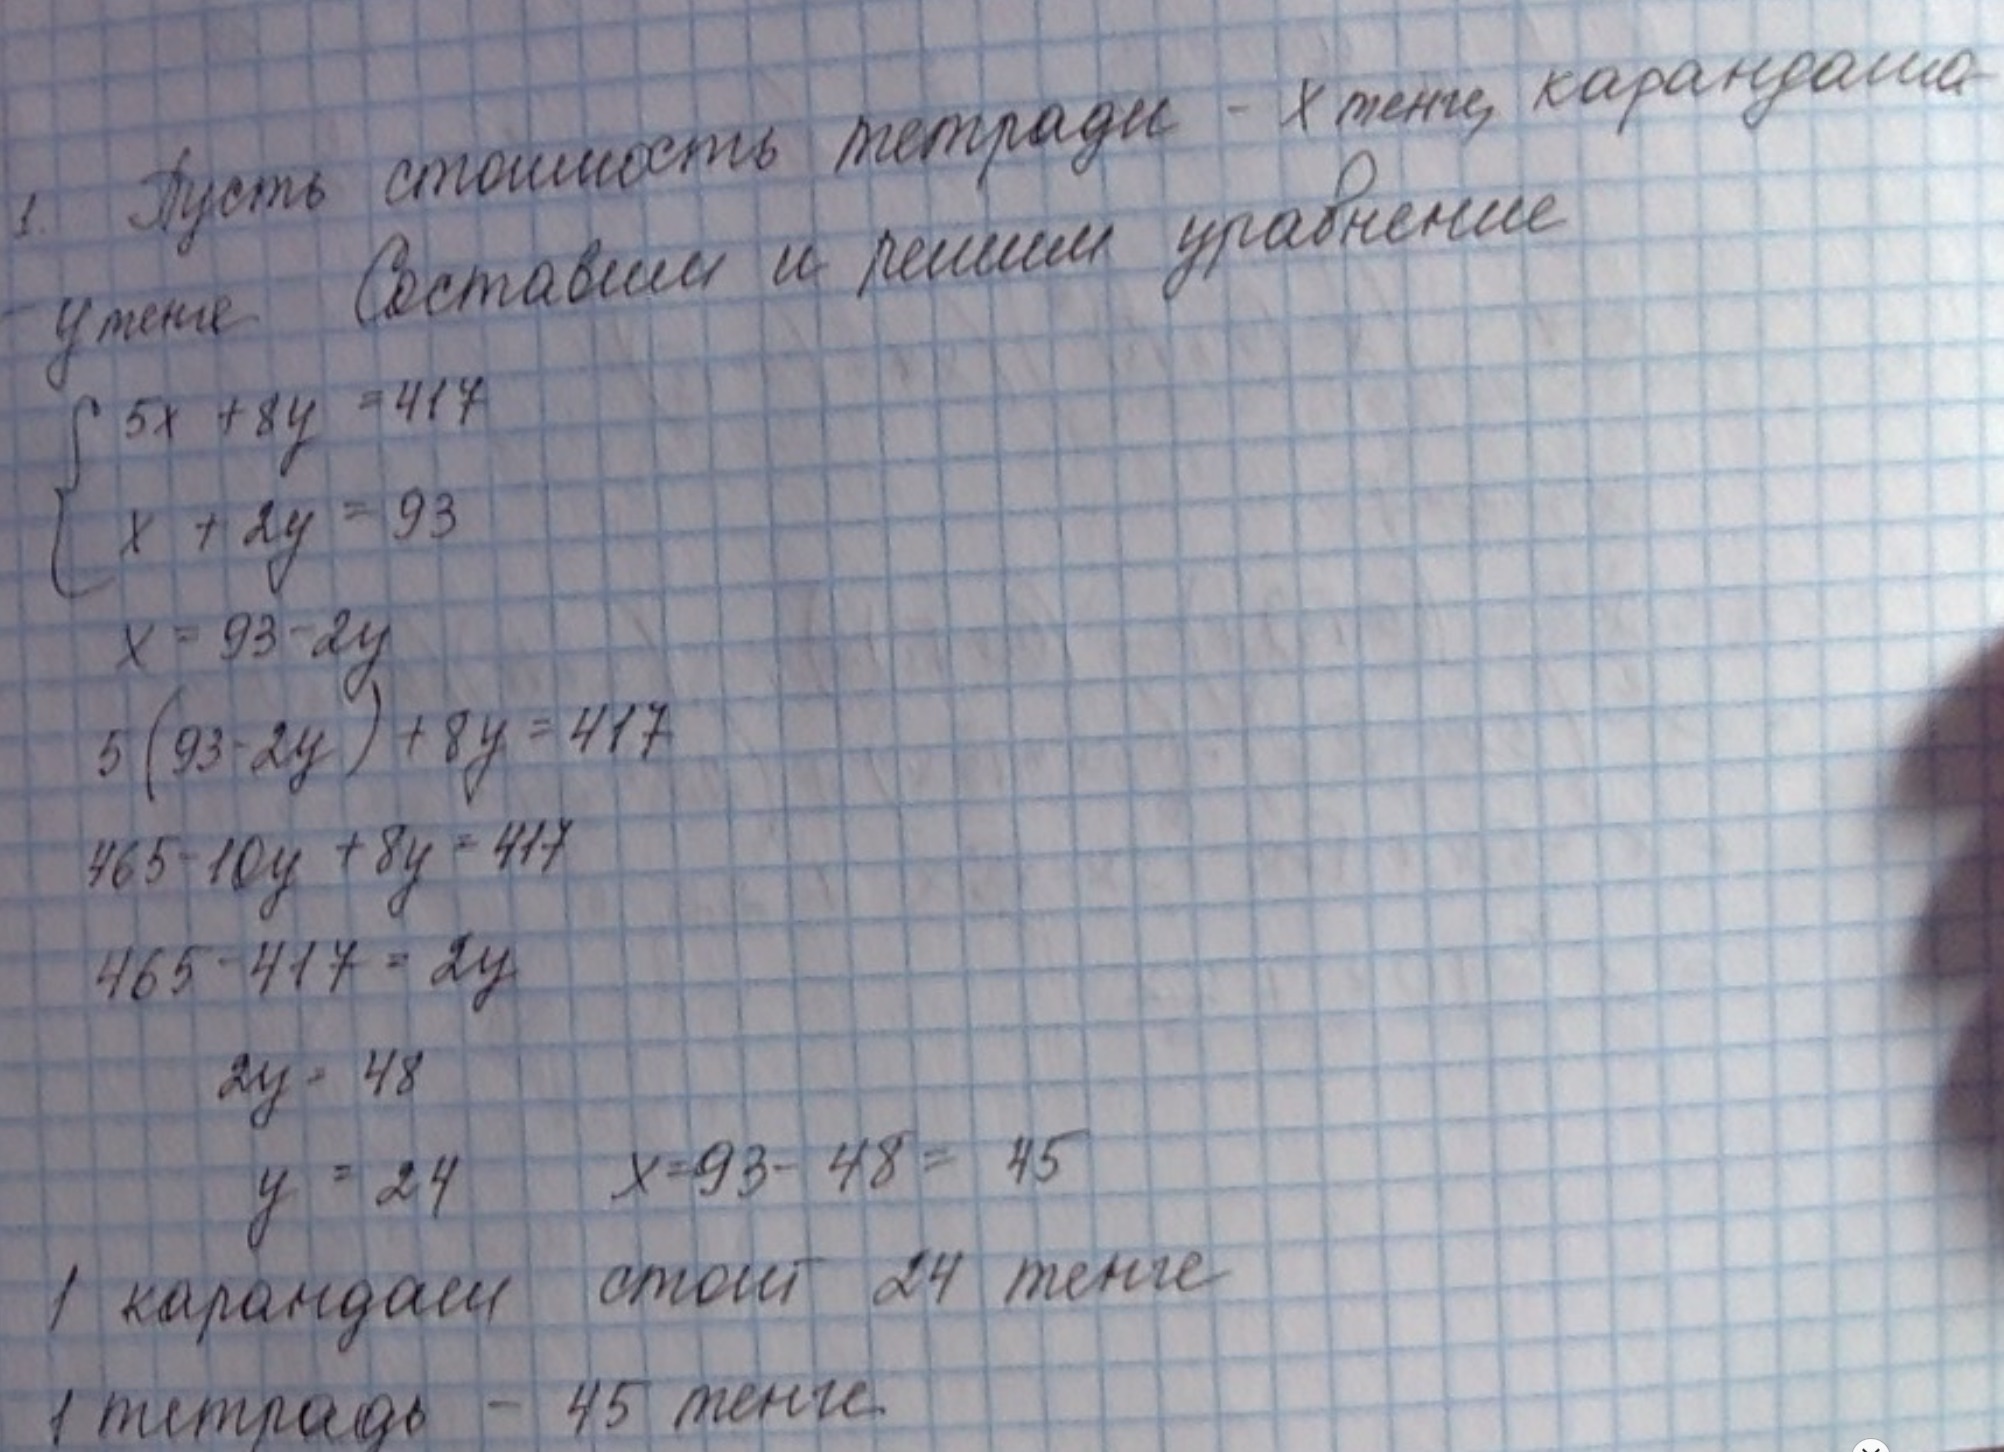 1. Пусть стоимость тетради - x тенге, карандаша -
- y тенге Составим и решим уравнение
5x + 8y = 417
x + 2y = 93
x = 93 - 2y
5(93 - 2y) + 8y = 417
465 - 10y + 8y = 417
465 - 417 = 2y
2y = 48
y = 24 x = 93 - 48 = 45
1 карандаш стоит 24 тенге
1 тетрадь - 45 тенге.